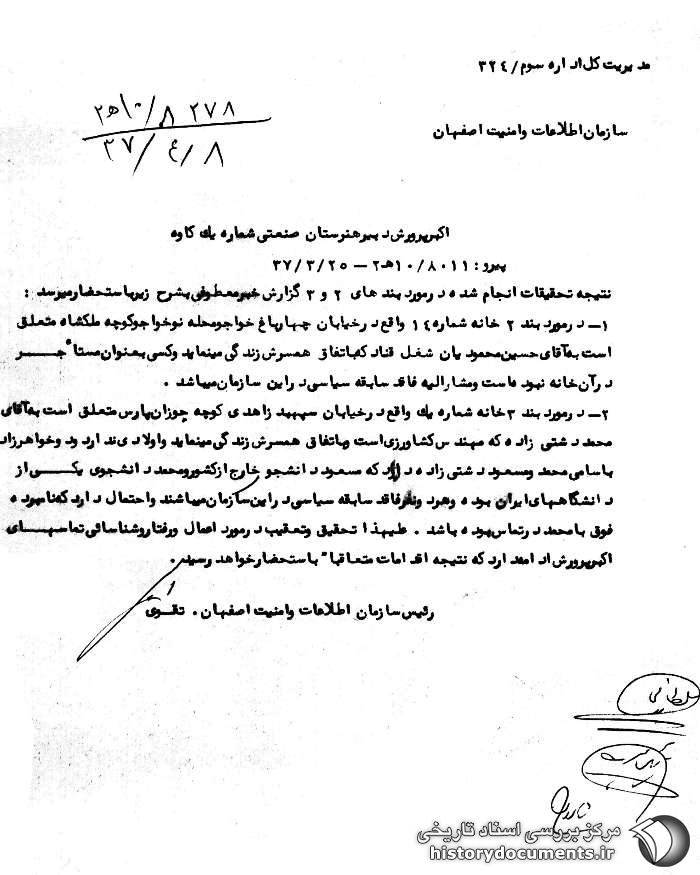 مدیریت کل اداره سوم/۳۲٤
۲۷۸ ۸/۱۰ه۲
۳۷/٤/۸
سازمان اطلاعات وامنیت اصفهان
اکبرپرورش دبیرهنرستان صنعتی شماره یك کاوه
پیرو: ۱۰/۸۰۱۱ه۲ — ۳۷/۳/۲۵
نتیجه تحقیقات انجام شده درمورد بند های ۲ و ۳ گزارش خبرمعطوفی بشرح زیرباستحضارمیرسد :
۱— درمورد بند ۲ خانه شماره ۱٤ واقع درخیابان چهارباغ خواجومحله نوخواجوکوچه ملکشاه متعلق
است به آقای حسین محمودیان شغل قناد که باتفاق همسرش زندگی مینماید وکسی بعنوان مستاءجر
درآن خانه نبوده است ومشارالیه فاقد سابقه سیاسی دراین سازمان میباشد .
۲— درمورد بند ۳ خانه شماره یك واقع درخیابان سپهبد زاهدی کوچه جوزان پارس متعلق است به آقای
محمد دشتی زاده که مهندس کشاورزی است وباتفاق همسرش زندگی مینماید واولادی ندارد ودوخواهرزاد
باسامی محمد ومسعود دشتی زاده دارد که مسعود دانشجو خارج ازکشورومحمد دانشجوی یکی از
دانشگاههای ایران بوده وهردونفرفاقد سابقه سیاسی دراین سازمان میباشند واحتمال دارد که نامبرده
فوق بامحمد درتماس بوده باشد . علیهذا تحقیق وتعقیب درمورد اعمال ورفتاروشناسائی تماسهای
اکبرپرورش ادامه دارد که نتیجه اقدامات متعاقبا" باستحضارخواهد رسید.
رئیس سازمان اطلاعات وامنیت اصفهان . تقوی
سلطانی
نادری
مرکز بررسی اسناد تاریخی
historydocuments.ir